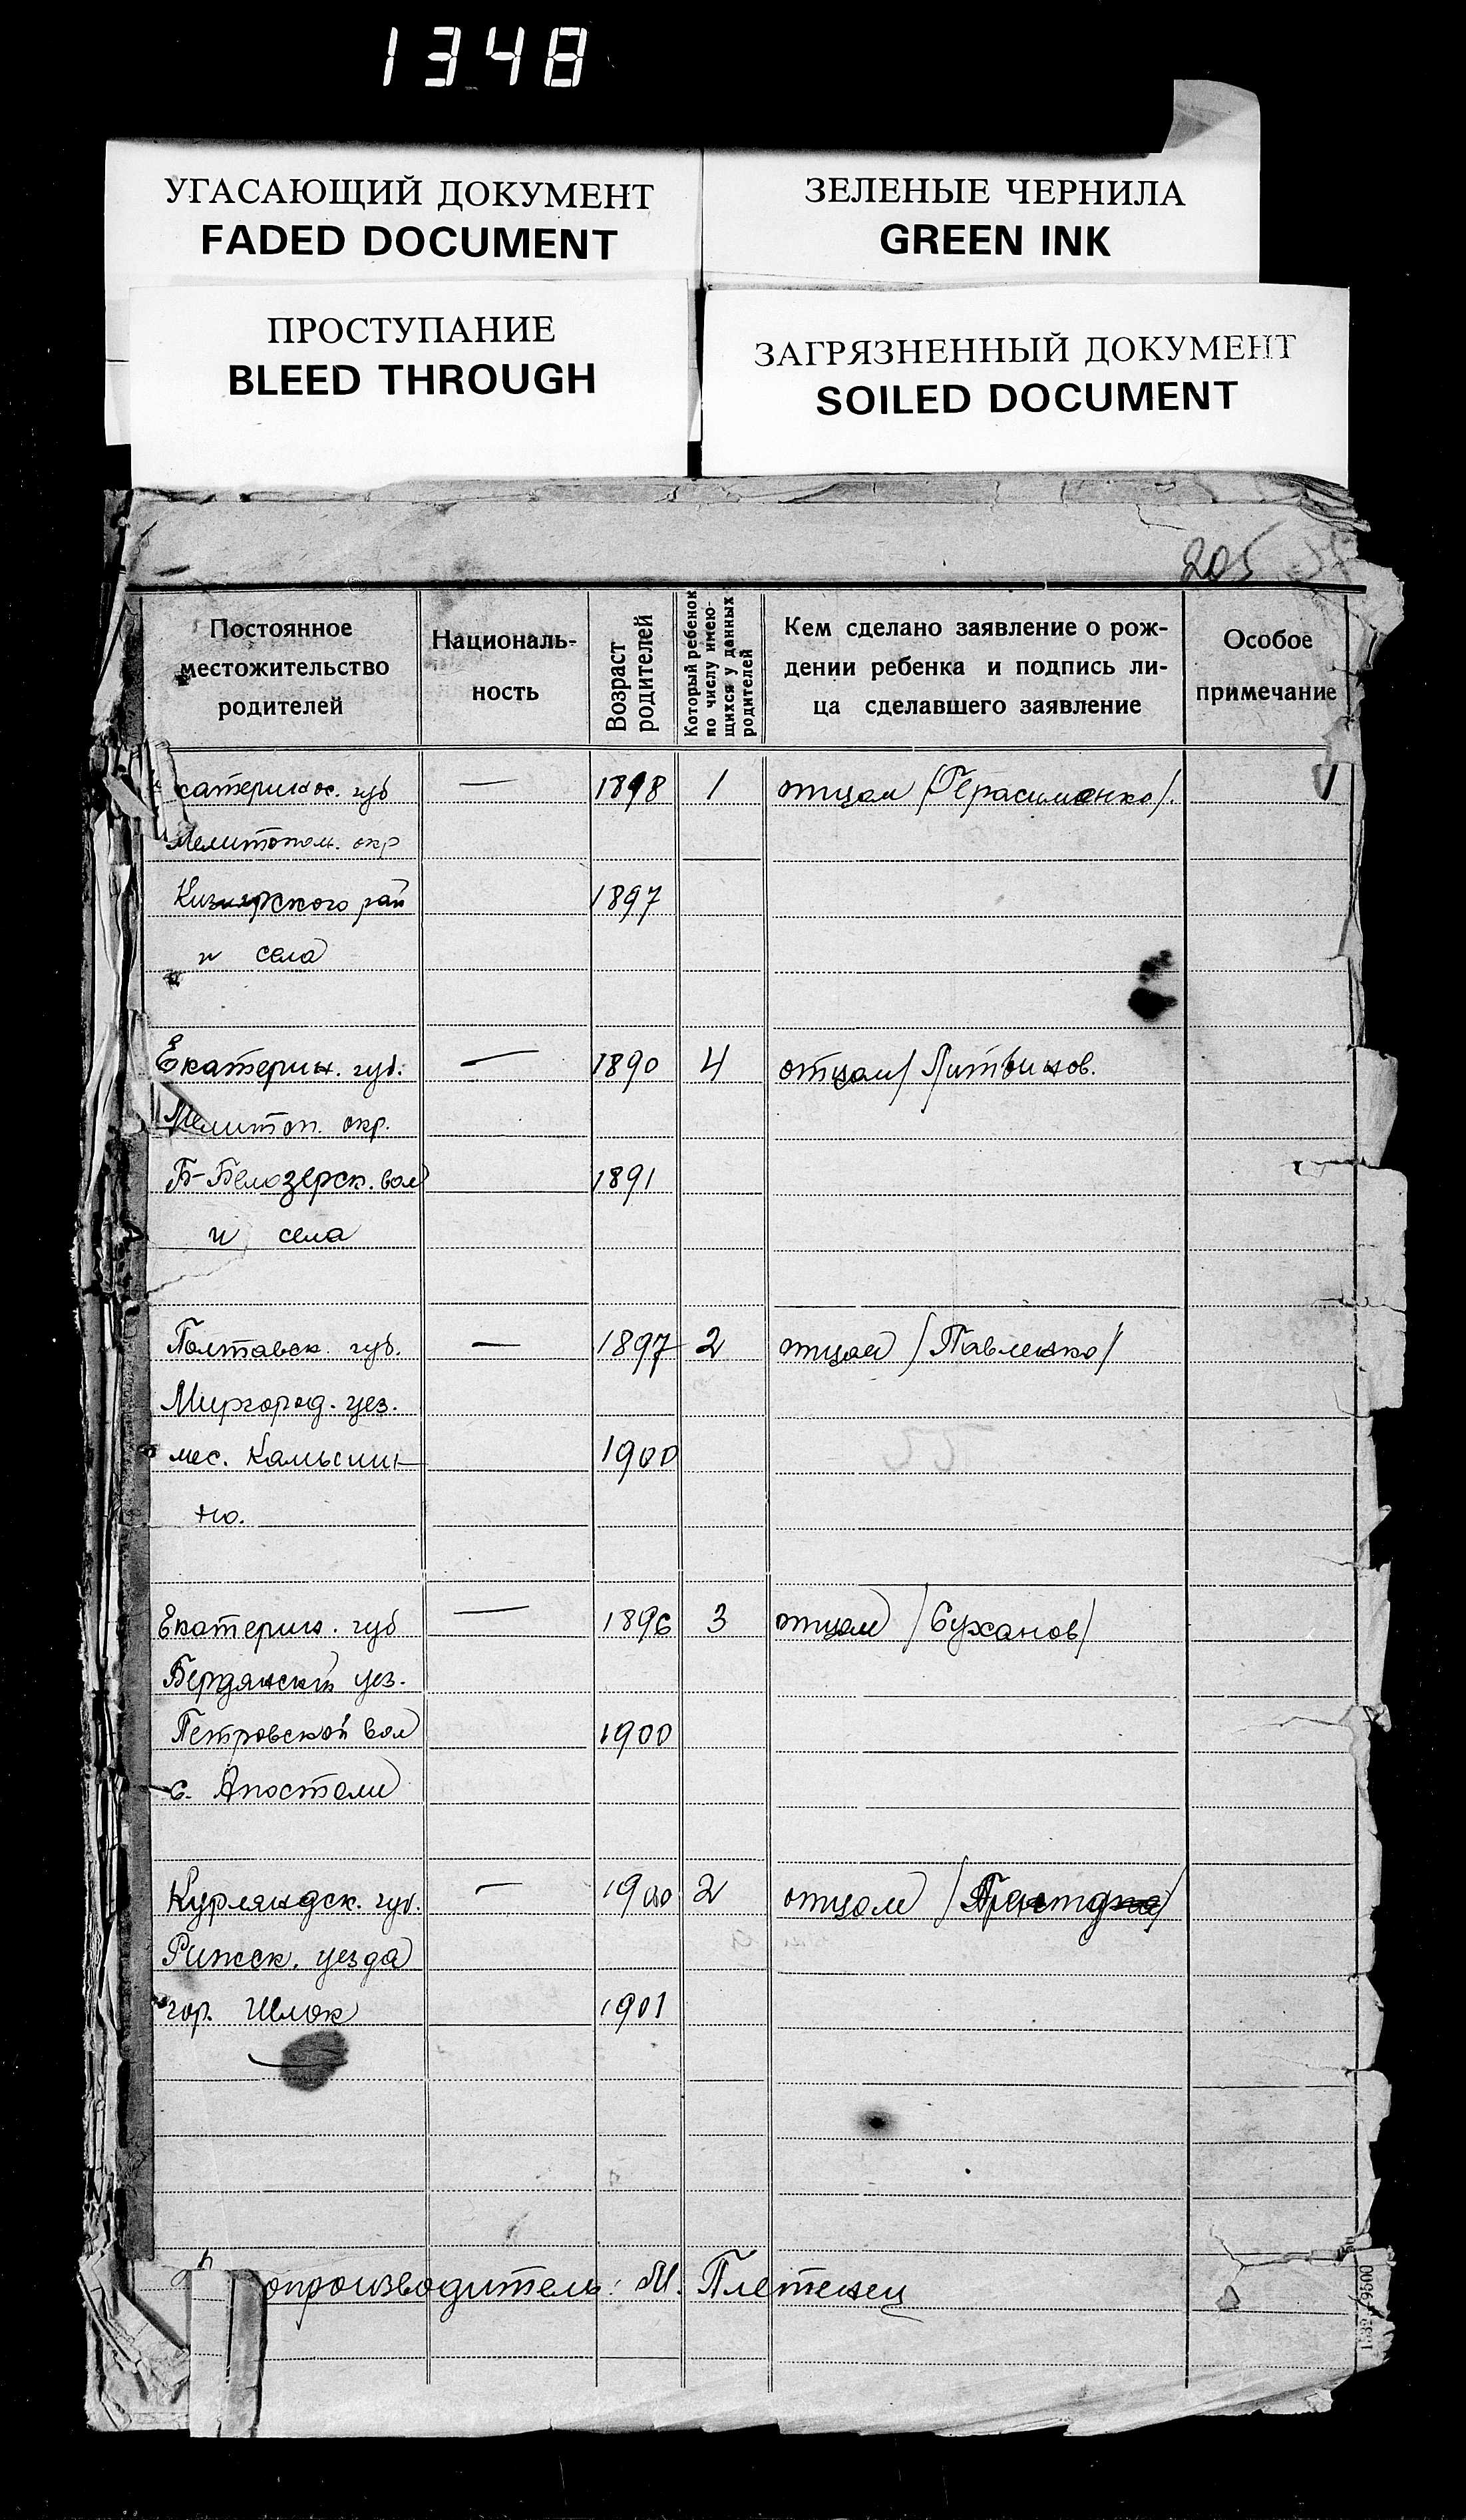 1348
УГАСАЮЩИЙ ДОКУМЕНТ
FADED DOCUMENT
ЗЕЛЕНЫЕ ЧЕРНИЛА
GREEN INK
ПРОСТУПАНИЕ
BLEED THROUGH
ЗАГРЯЗНЕННЫЙ ДОКУМЕНТ
SOILED DOCUMENT
205
Постоянное
местожительство
родителей
Националь-
ность
Возраст
родителей
Который ребенок
по числу имею-
щихся у данных
родителей
Кем сделано заявление о рож-
дении ребенка и подпись ли-
ца сделавшего заявление
Особое
примечание
катеринос. губ — 1898 1 отцом /Герасименко/.
Мелитопол. окр
Кизиярского рай 1897
и села
Екатерин. губ. — 1890 4 отцом/ Литвинов.
Мелитоп. окр.
Б-Белозерск. вол 1891
и села
Полтавск. губ. — 1897 2 отцом /Павленко/
Миргород. уез.
мес. Камыши 1900
но.
Екатерин. губ — 1896 3 отцом /Суханов/
Бердянский уез.
Петровской вол 1900
с. Апостоли
Курляндск. губ. — 1900 2 отцом
Рижск. уезда
гор. Шлок 1901
опроизводитель: М. Плетенец